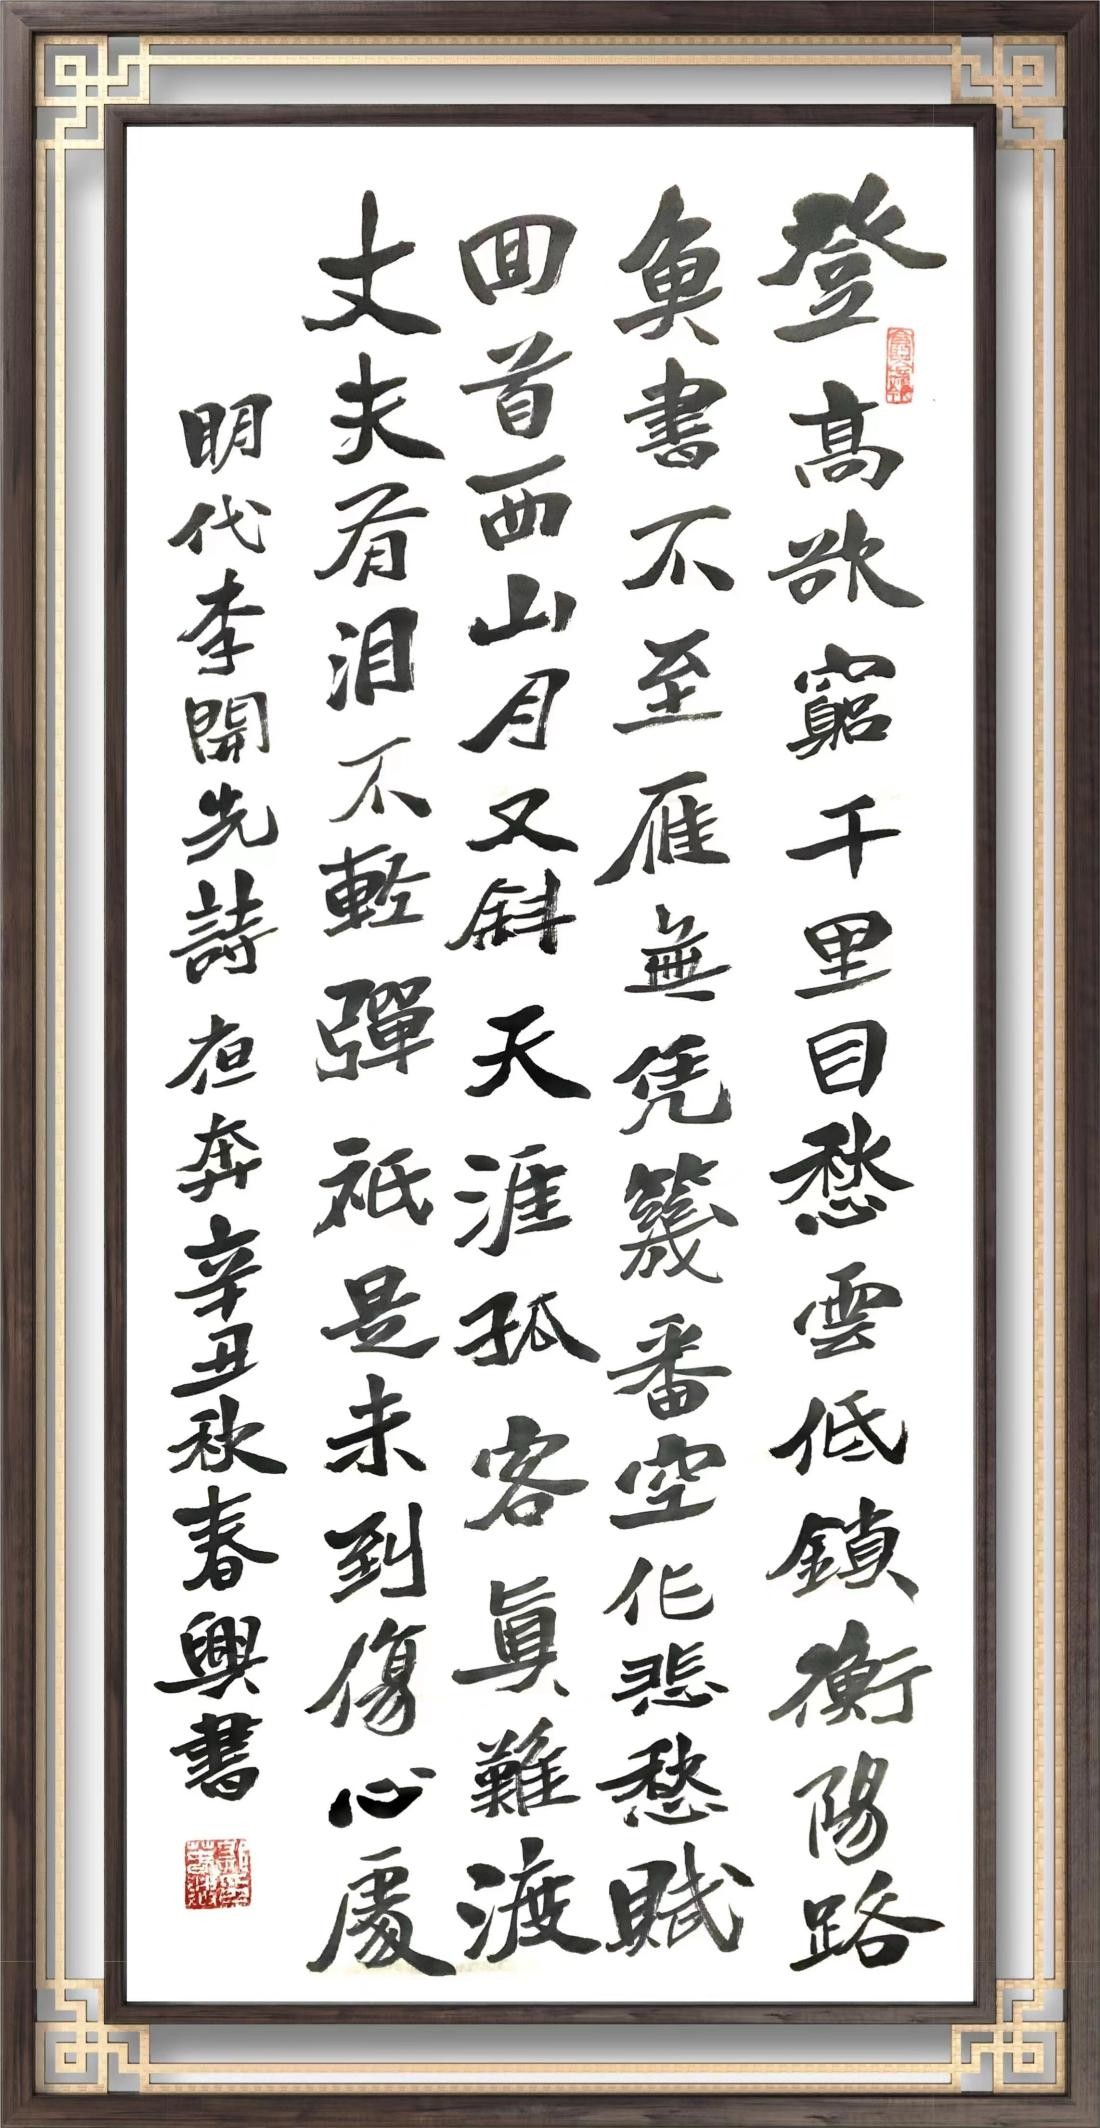 登高欲窮千里目愁雲低鎖衡陽路
魚書不至雁無凭幾番空化悲愁賦
回首西山月又斜天涯孤客真難渡
丈夫有泪不輕彈祇是未到傷心處
明代李開先詩夜奔辛丑秋春興書